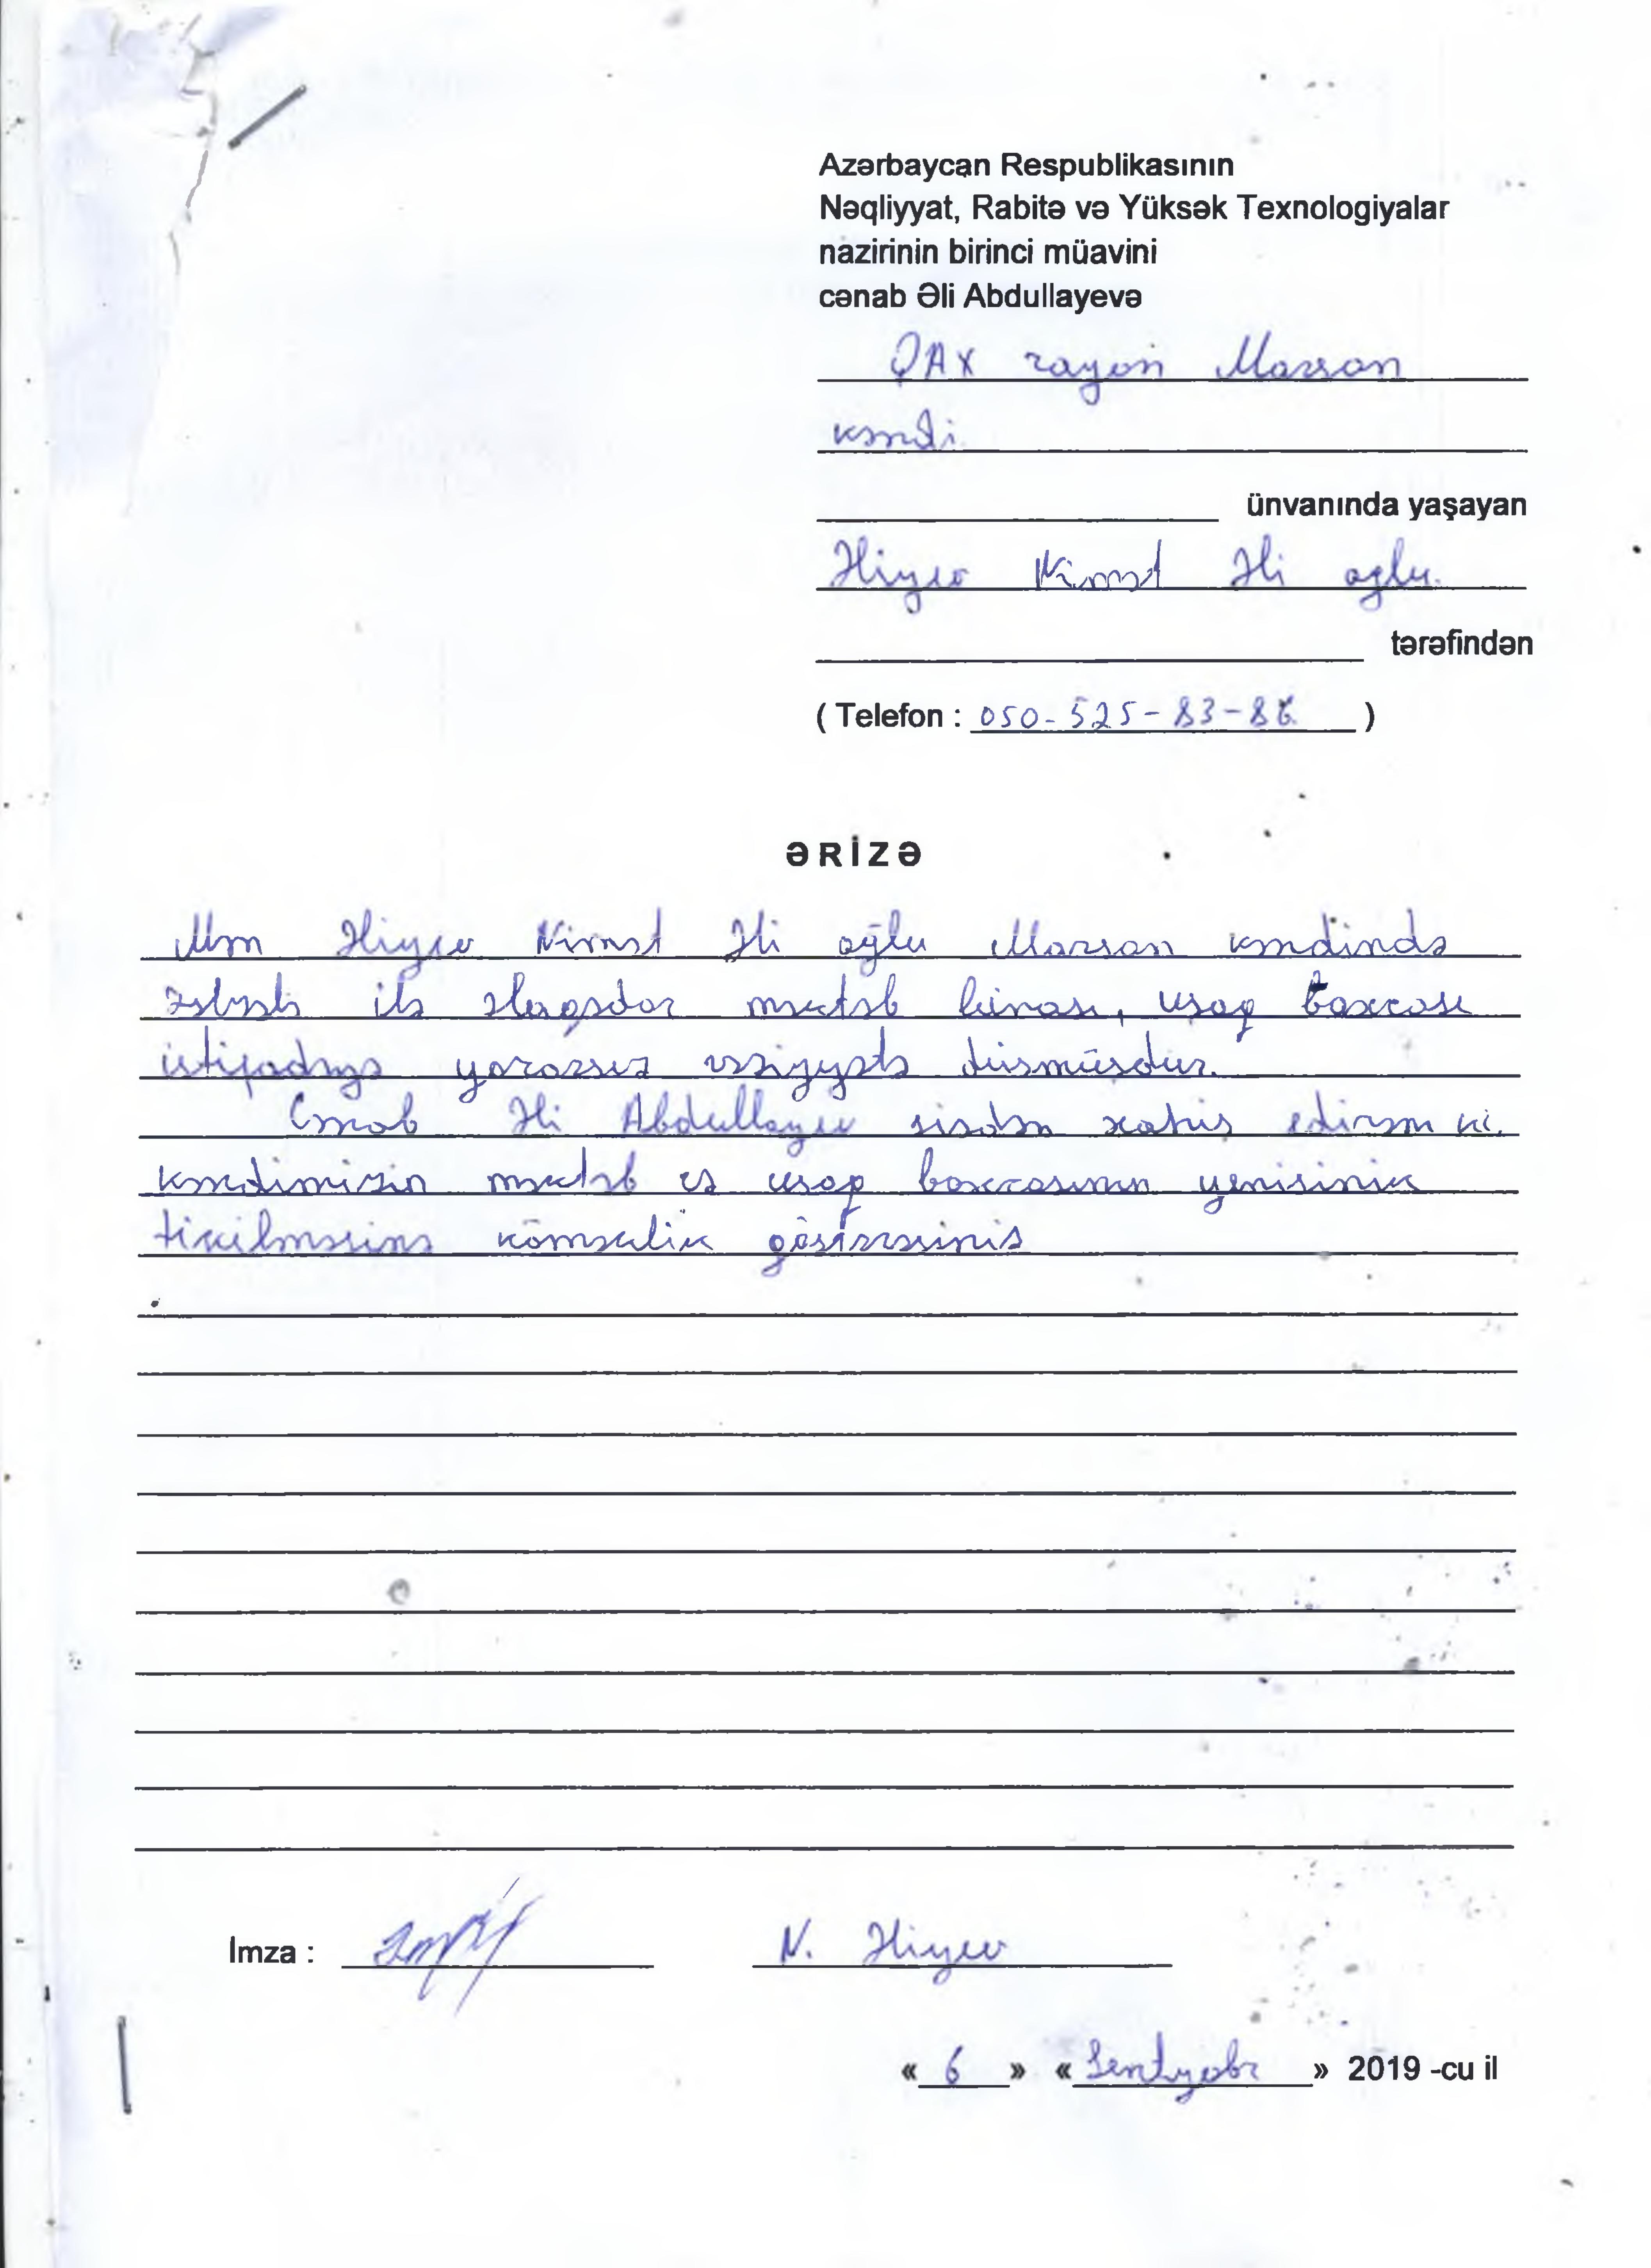 Azərbaycan Respublikasının
Nəqliyyat, Rabitə və Yüksək Texnologiyalar
nazirinin birinci müavini
cənab Əli Abdullayevə
QAX rayon Marsan
kəndi
ünvanında yaşayan
Əliyev Nimət Əli oglu.
tərəfindən
( Telefon : 050-525-83-86 )
ƏRİZƏ
Mən Əliyev Nimət Əli oğlu Marsan kəndində
ilə əlaqədar məktəb binası, uşaq baxcası
istifadəyə yararsız vəziyyətə düşmüşdür.
Cənab Əli Abdullayev sisdən xahiş edirəm ki.
kəndimizin məktəb və uşaq baxcasının yenisinin
tikilməsinə köməklik göstərəsinis
İmza : N. Əliyev
« 6 » « Sentyabr » 2019 -cu il